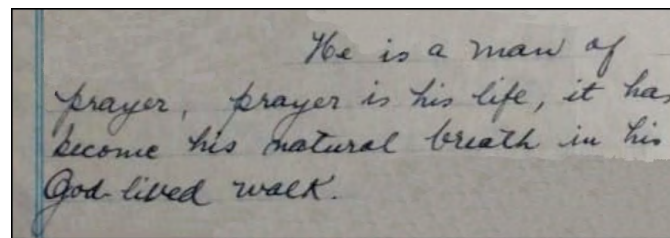 He is a man of
prayer, prayer is his life, it has
become his natural breath in his
God-lived walk.